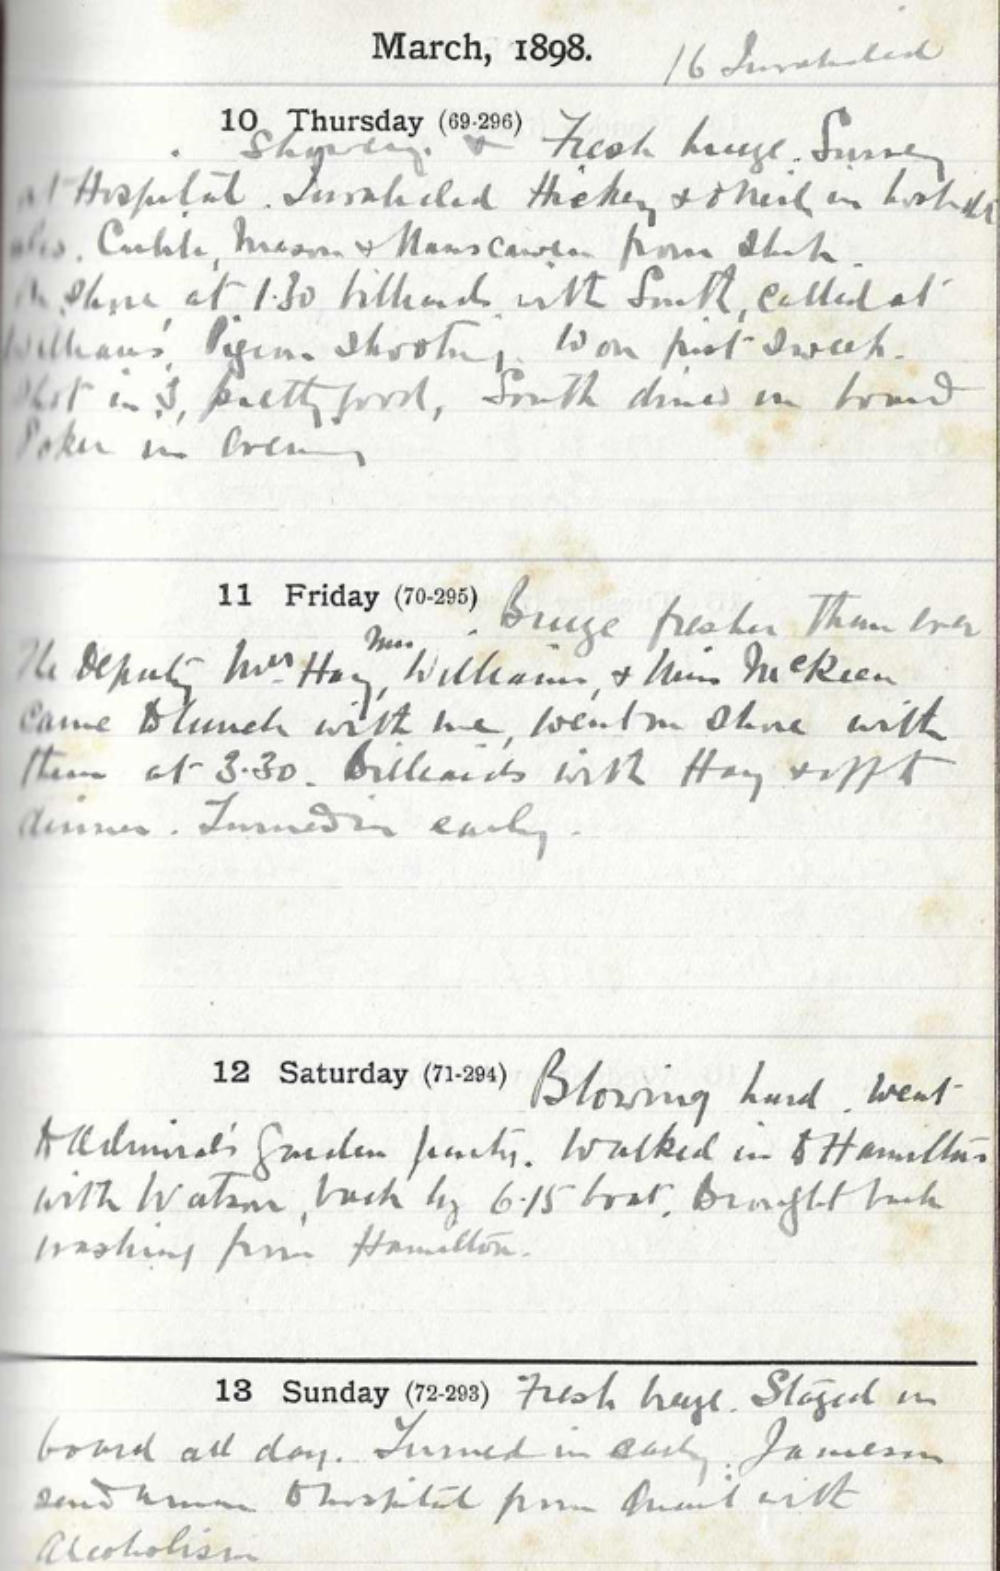 March, 1898.
16 Invalided
10 Thursday (69-296) Fresh breeze. Survey
Showery. &
at Hospital. Invalided Hickey & O'Neil in
Mason & from
on shore at 1.30 billiards with South, called at
William's, Pigeon shooting. Won first sweep.
Shot in 3, pretty good, South dined on board
Poker in evening
11 Friday (70-295) Breeze fresher than ever
Mrs
The Deputy Mrs Hay, Williams, & Miss McKeen
came to lunch with me, went on shore with
them at 3.30. Billiards with Hay & off to
dinner. Turned in early.
12 Saturday (71-294) Blowing hard. Went
to Admiral's Garden party. Walked in to Hamilton
with Watson, back by 6.15 boat. Brought back
washing from Hamilton.
13 Sunday (72-293) Fresh breeze. Stayed on
board all day. Turned in early. Jameson
send to hospital from with
Alcoholism